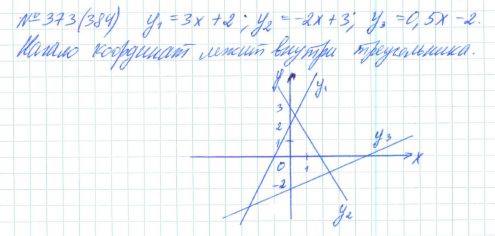 № 373(384) y₁ = 3x + 2; y₂ = -2x + 3; y₃ = 0,5x - 2.
Начало координат лежит внутри треугольника.
y
y₁
3
2
y₃
1
0
1
x
-2
y₂